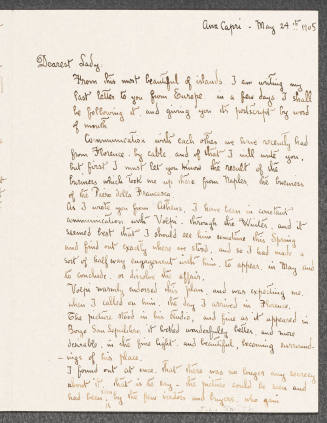 Ana Capri - May 24th 1905
Dearest Lady.
From this most beautiful of islands I am writing my
last letter to you from Europe in a few days I shall
be following it, and giving you its postscript by word
of mouth
Communication with each other we have recently had
from Florence, by cable, and of that I will write you,
but first I must let you know the result of the
business which took me up there from Naples the business
of the Piero della Francesca
As I wrote you from Athens, I have been in constant
communication with Volpi, through the Winter, and it
seemed best that I should see him sometime this Spring
and find out exactly where we stood, and so I had made a
sort of half way engagement with him, to appear, in May and
to conclude, or dissolve the affair.
Volpi warmly endorsed this plan and was expecting me,
when I called on him, the day I arrived in Florence.
The picture stood in his studio, and fine as it appeared in
Borgo San Sepulchro it looked wonderfully better, and more
desirable, in the fine light, and beautiful, becoming surround-
-ings of his place.
I found out at once, that there was no longer any secrecy
about it, that is to say - the picture could be seen and
had been, by the few vendors and buyers, who gain